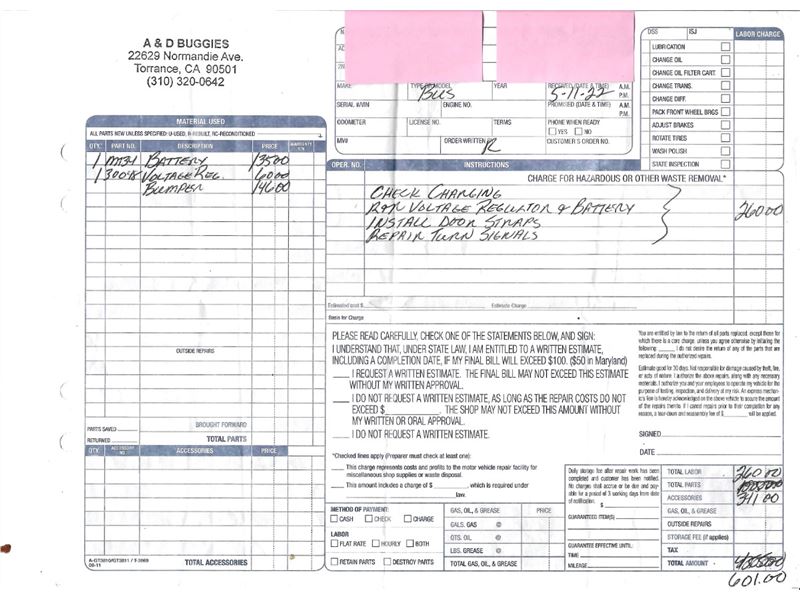 A & D BUGGIES
22629 Normandie Ave.
Torrance, CA 90501
(310) 320-0642
MAKE TYPE OR MODEL YEAR RECEIVED (DATE & TIME) A.M. P.M.
BUS 5-11-22
SERIAL #/VIN ENGINE NO. PROMISED (DATE & TIME) A.M. P.M.
ODOMETER LICENSE NO. TERMS PHONE WHEN READY
YES NO
MV# ORDER WRITTEN R CUSTOMER'S ORDER NO.
DSS ISJ LABOR CHARGE
LUBRICATION
CHANGE OIL
CHANGE OIL FILTER CART
CHANGE TRANS.
CHANGE DIFF.
PACK FRONT WHEEL BRGS
ADJUST BRAKES
ROTATE TIRES
WASH POLISH
STATE INSPECTION
MATERIAL USED
ALL PARTS NEW UNLESS SPECIFIED: U-USED, R-REBUILT, RC-RECONDITIONED
QTY. PART NO. DESCRIPTION PRICE WARRANTY Y/N
1 M34 BATTERY 135 00
1 VOLTAGE REG. 60 00
BUMPER 146 00
OUTSIDE REPAIRS
PARTS SAVED
RETURNED
BROUGHT FORWARD
TOTAL PARTS
QTY. ACCESSORY NO. ACCESSORIES PRICE
TOTAL ACCESSORIES
OPER. NO. INSTRUCTIONS
CHARGE FOR HAZARDOUS OR OTHER WASTE REMOVAL*
CHECK CHARGING
R&R VOLTAGE REGULATOR & BATTERY
INSTALL DOOR STRAPS
REPAIR TURN SIGNALS
260 00
Estimated cost $ Estimate Charge
Basis for Charge
PLEASE READ CAREFULLY, CHECK ONE OF THE STATEMENTS BELOW, AND SIGN:
I UNDERSTAND THAT, UNDER STATE LAW, I AM ENTITLED TO A WRITTEN ESTIMATE,
INCLUDING A COMPLETION DATE, IF MY FINAL BILL WILL EXCEED $100. ($50 in Maryland)
I REQUEST A WRITTEN ESTIMATE. THE FINAL BILL MAY NOT EXCEED THIS ESTIMATE
WITHOUT MY WRITTEN APPROVAL.
I DO NOT REQUEST A WRITTEN ESTIMATE, AS LONG AS THE REPAIR COSTS DO NOT
EXCEED $ . THE SHOP MAY NOT EXCEED THIS AMOUNT WITHOUT
MY WRITTEN OR ORAL APPROVAL.
I DO NOT REQUEST A WRITTEN ESTIMATE.
*Checked lines apply (Preparer must check at least one):
This charge represents costs and profits to the motor vehicle repair facility for
miscellaneous shop supplies or waste disposal.
This amount includes a charge of $ , which is required under
law.
You are entitled by law to the return of all parts replaced, except those for
which there is a core charge, unless you agree otherwise by initialing the
following: I do not desire the return of any of the parts that are
replaced during the authorized repairs.
Estimate good for 30 days. Not responsible for damage caused by theft, fire,
or acts of nature. I authorize the above repairs, along with any necessary
materials. I authorize you and your employees to operate my vehicle for the
purpose of testing, inspection, and delivery at my risk. An express mechan-
ic's lien is hereby acknowledged on the above vehicle to secure the amount
of the repairs thereto. If I cancel repairs prior to their completion for any
reason, a tear-down and reassembly fee of $ will be applied.
SIGNED
DATE
METHOD OF PAYMENT:
CASH CHECK CHARGE
LABOR
FLAT RATE HOURLY BOTH
RETAIN PARTS DESTROY PARTS
GAS, OIL, & GREASE PRICE
GALS. GAS @
QTS. OIL @
LBS. GREASE @
TOTAL GAS, OIL, & GREASE
Daily storage fee after repair work has been
completed and customer has been notified.
No charges shall accrue or be due and pay-
able for a period of 3 working days from date
of notification. $
GUARANTEED ITEM(S)
GUARANTEE EFFECTIVE UNTIL:
TIME
MILEAGE
TOTAL LABOR 260 00
TOTAL PARTS
ACCESSORIES 341.00
GAS, OIL, & GREASE
OUTSIDE REPAIRS
STORAGE FEE (if applies)
TAX
TOTAL AMOUNT
601.00